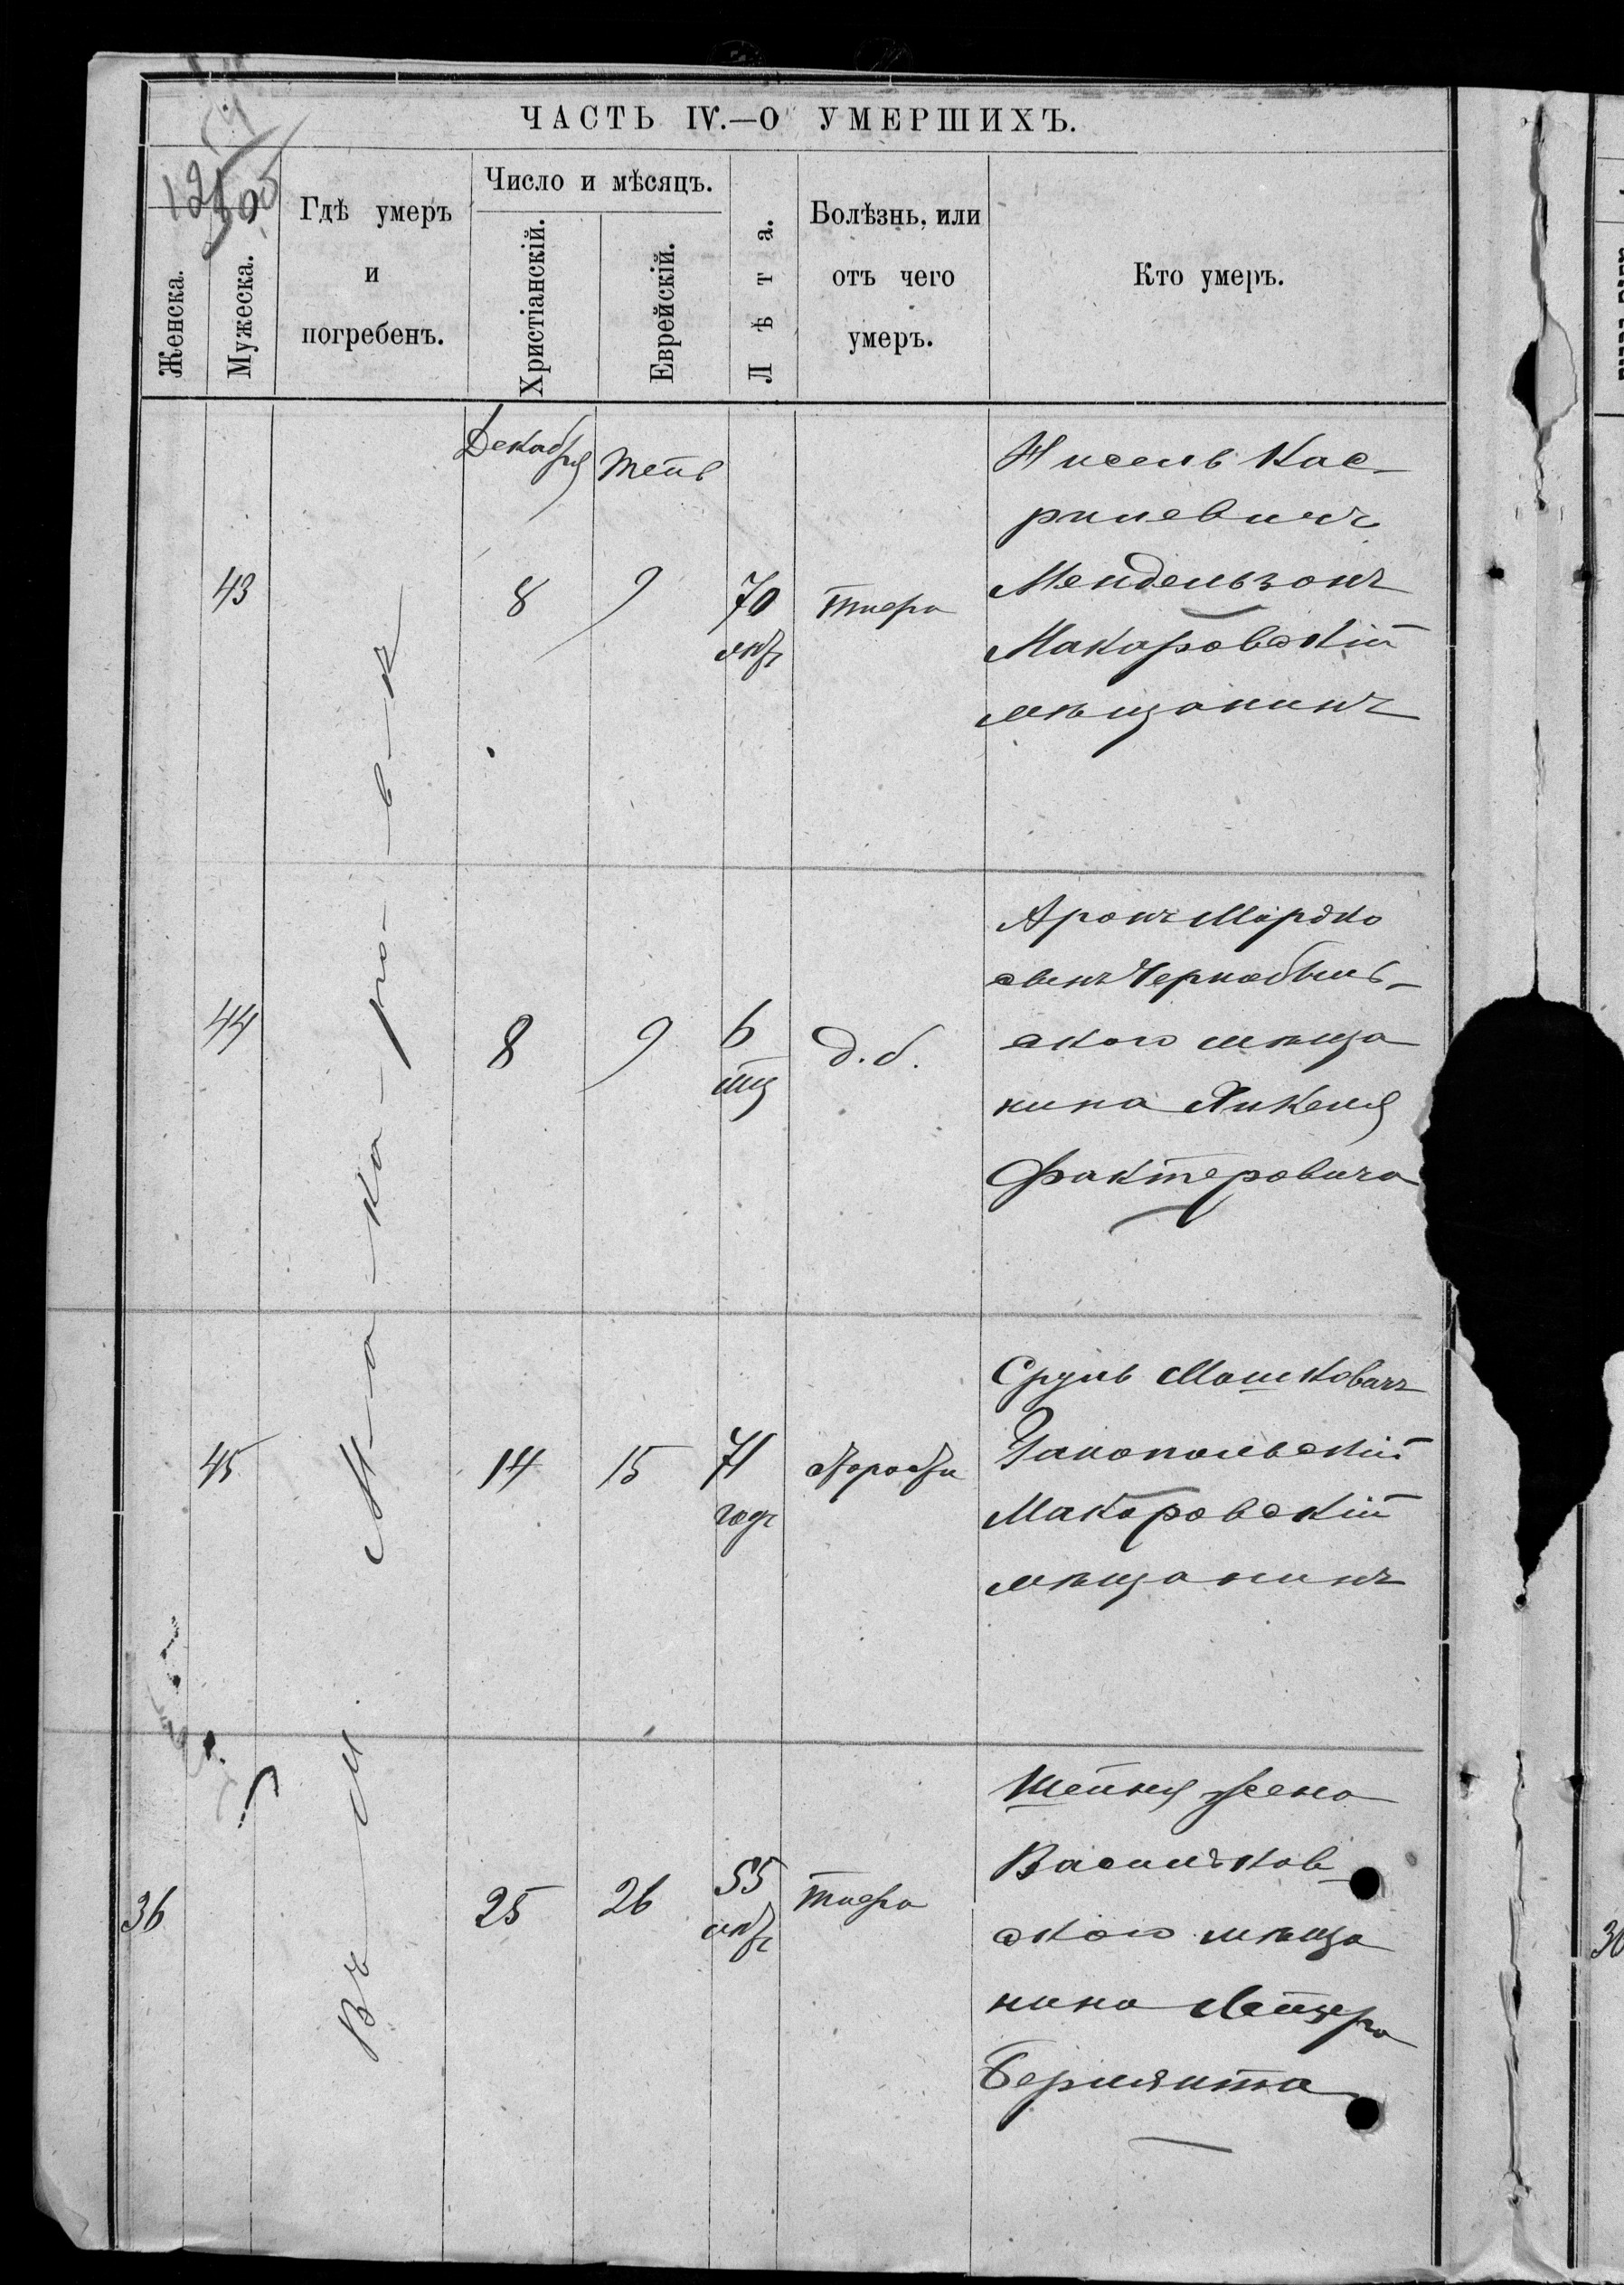 ЧАСТЬ IV.—О УМЕРШИХЪ.
Женска.
Мужеска.
Гдѣ умеръ
и
погребенъ.
Число и мѣсяцъ.
Христіанскій.
Еврейскій.
Лѣта.
Болѣзнь, или
отъ чего
умеръ.
Кто умеръ.
Въ м. Ма-ка-ро-в-ѣ
Декабря
Тейв
43
8
9
70
лѣтъ
тифа
Нисель Кас-
рилевичъ
Мендельзонъ
Макаровскій
мѣщанинъ
44
8
9
6
мц
д. б.
Аронъ Мордко
сынъ Чернобыль-
скаго мѣща
нина Янкеля
Фактеровича
45
14
15
71
годъ
старости
Сруль Мошковичъ
Макаровскій
мѣщанинъ
36
25
26
55
лѣтъ
тифа
Шейня жена
Васильков-
скаго мѣща
нина Лейзера
Берлянта